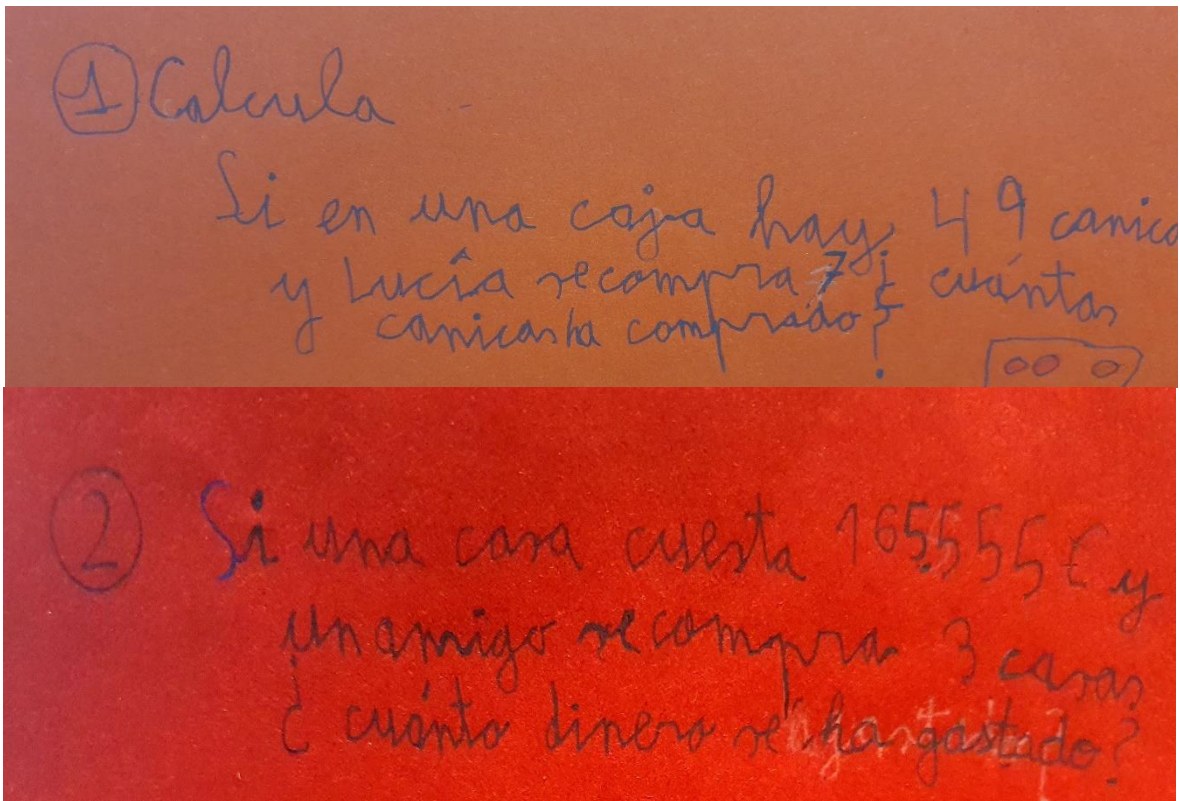 ① Calcula
Si en una caja hay 49 canica
y Lucía se compra 7 ¿ cuántas
canicas ha comprado?
② Si una casa cuesta 165.555 € y
un amigo se compra 3 casas
¿ cuánto dinero se ha gastado?